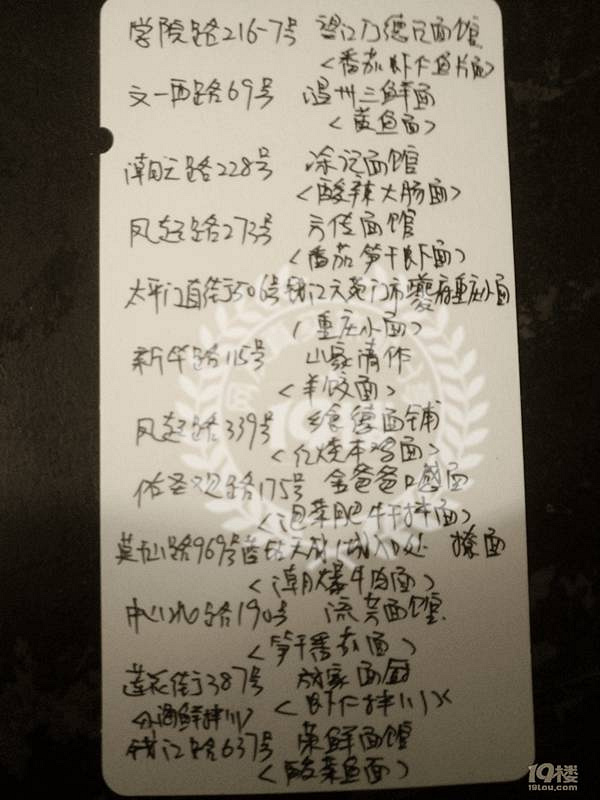 学院路216-7号 望江门德记面馆
<番茄虾仁鱼片面>
文一西路69号 温州三鲜面
<黄鱼面>
潮王路228号 涂记面馆
<酸辣大肠面>
凤起路273号 方传面馆
<番茄笋干虾面>
太平门直街506号钱江大苑门市夔府重庆小面
<重庆小面>
新华路115号 山家清作
<羊饺面>
凤起路339号 德面铺
<红烧本鸡面>
佑圣观路175号 金爸爸口感面
<泡菜肥牛拌面>
莫干山路969号 入口处 撩面
<潮爆牛肉面>
中心北路190号 面馆
<笋干番茄面>
莲花街387号 放家面厨
<小海鲜拌川> <虾仁拌川>
钱江路637号 荣鲜面馆
<酸菜鱼面>
19楼
19lou.com